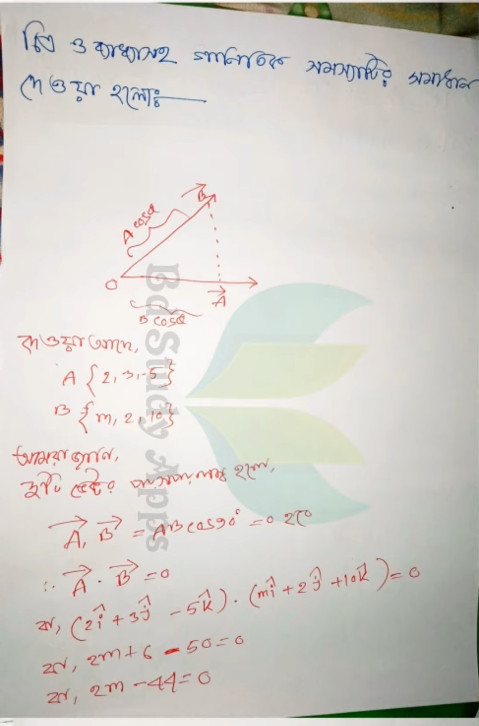 চিত্র ও ব্যাখ্যাসহ গানিতিক সমস্যাটির সমাধান
দেওয়া হলোঃ
B
A cosθ
O
A
B cosθ
দেওয়া আছে,
A {2, 3, -5}
B {m, 2, 10}
আমরা জানি,
দুটি ভেক্টর পরস্পর লম্ব হলে,
A, B = AB cos90° = 0 হবে
∴ A · B = 0
বা, (2î + 3ĵ - 5k̂) · (mî + 2ĵ + 10k̂) = 0
বা, 2m + 6 - 50 = 0
বা, 2m - 44 = 0
Bd Study Apps